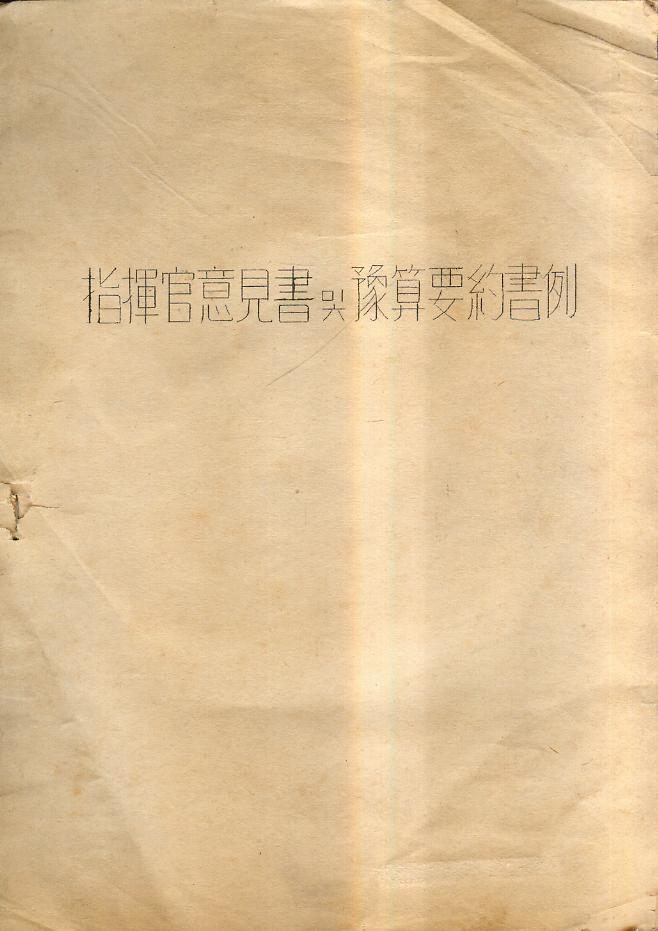 指揮官意見書및豫算要約書例